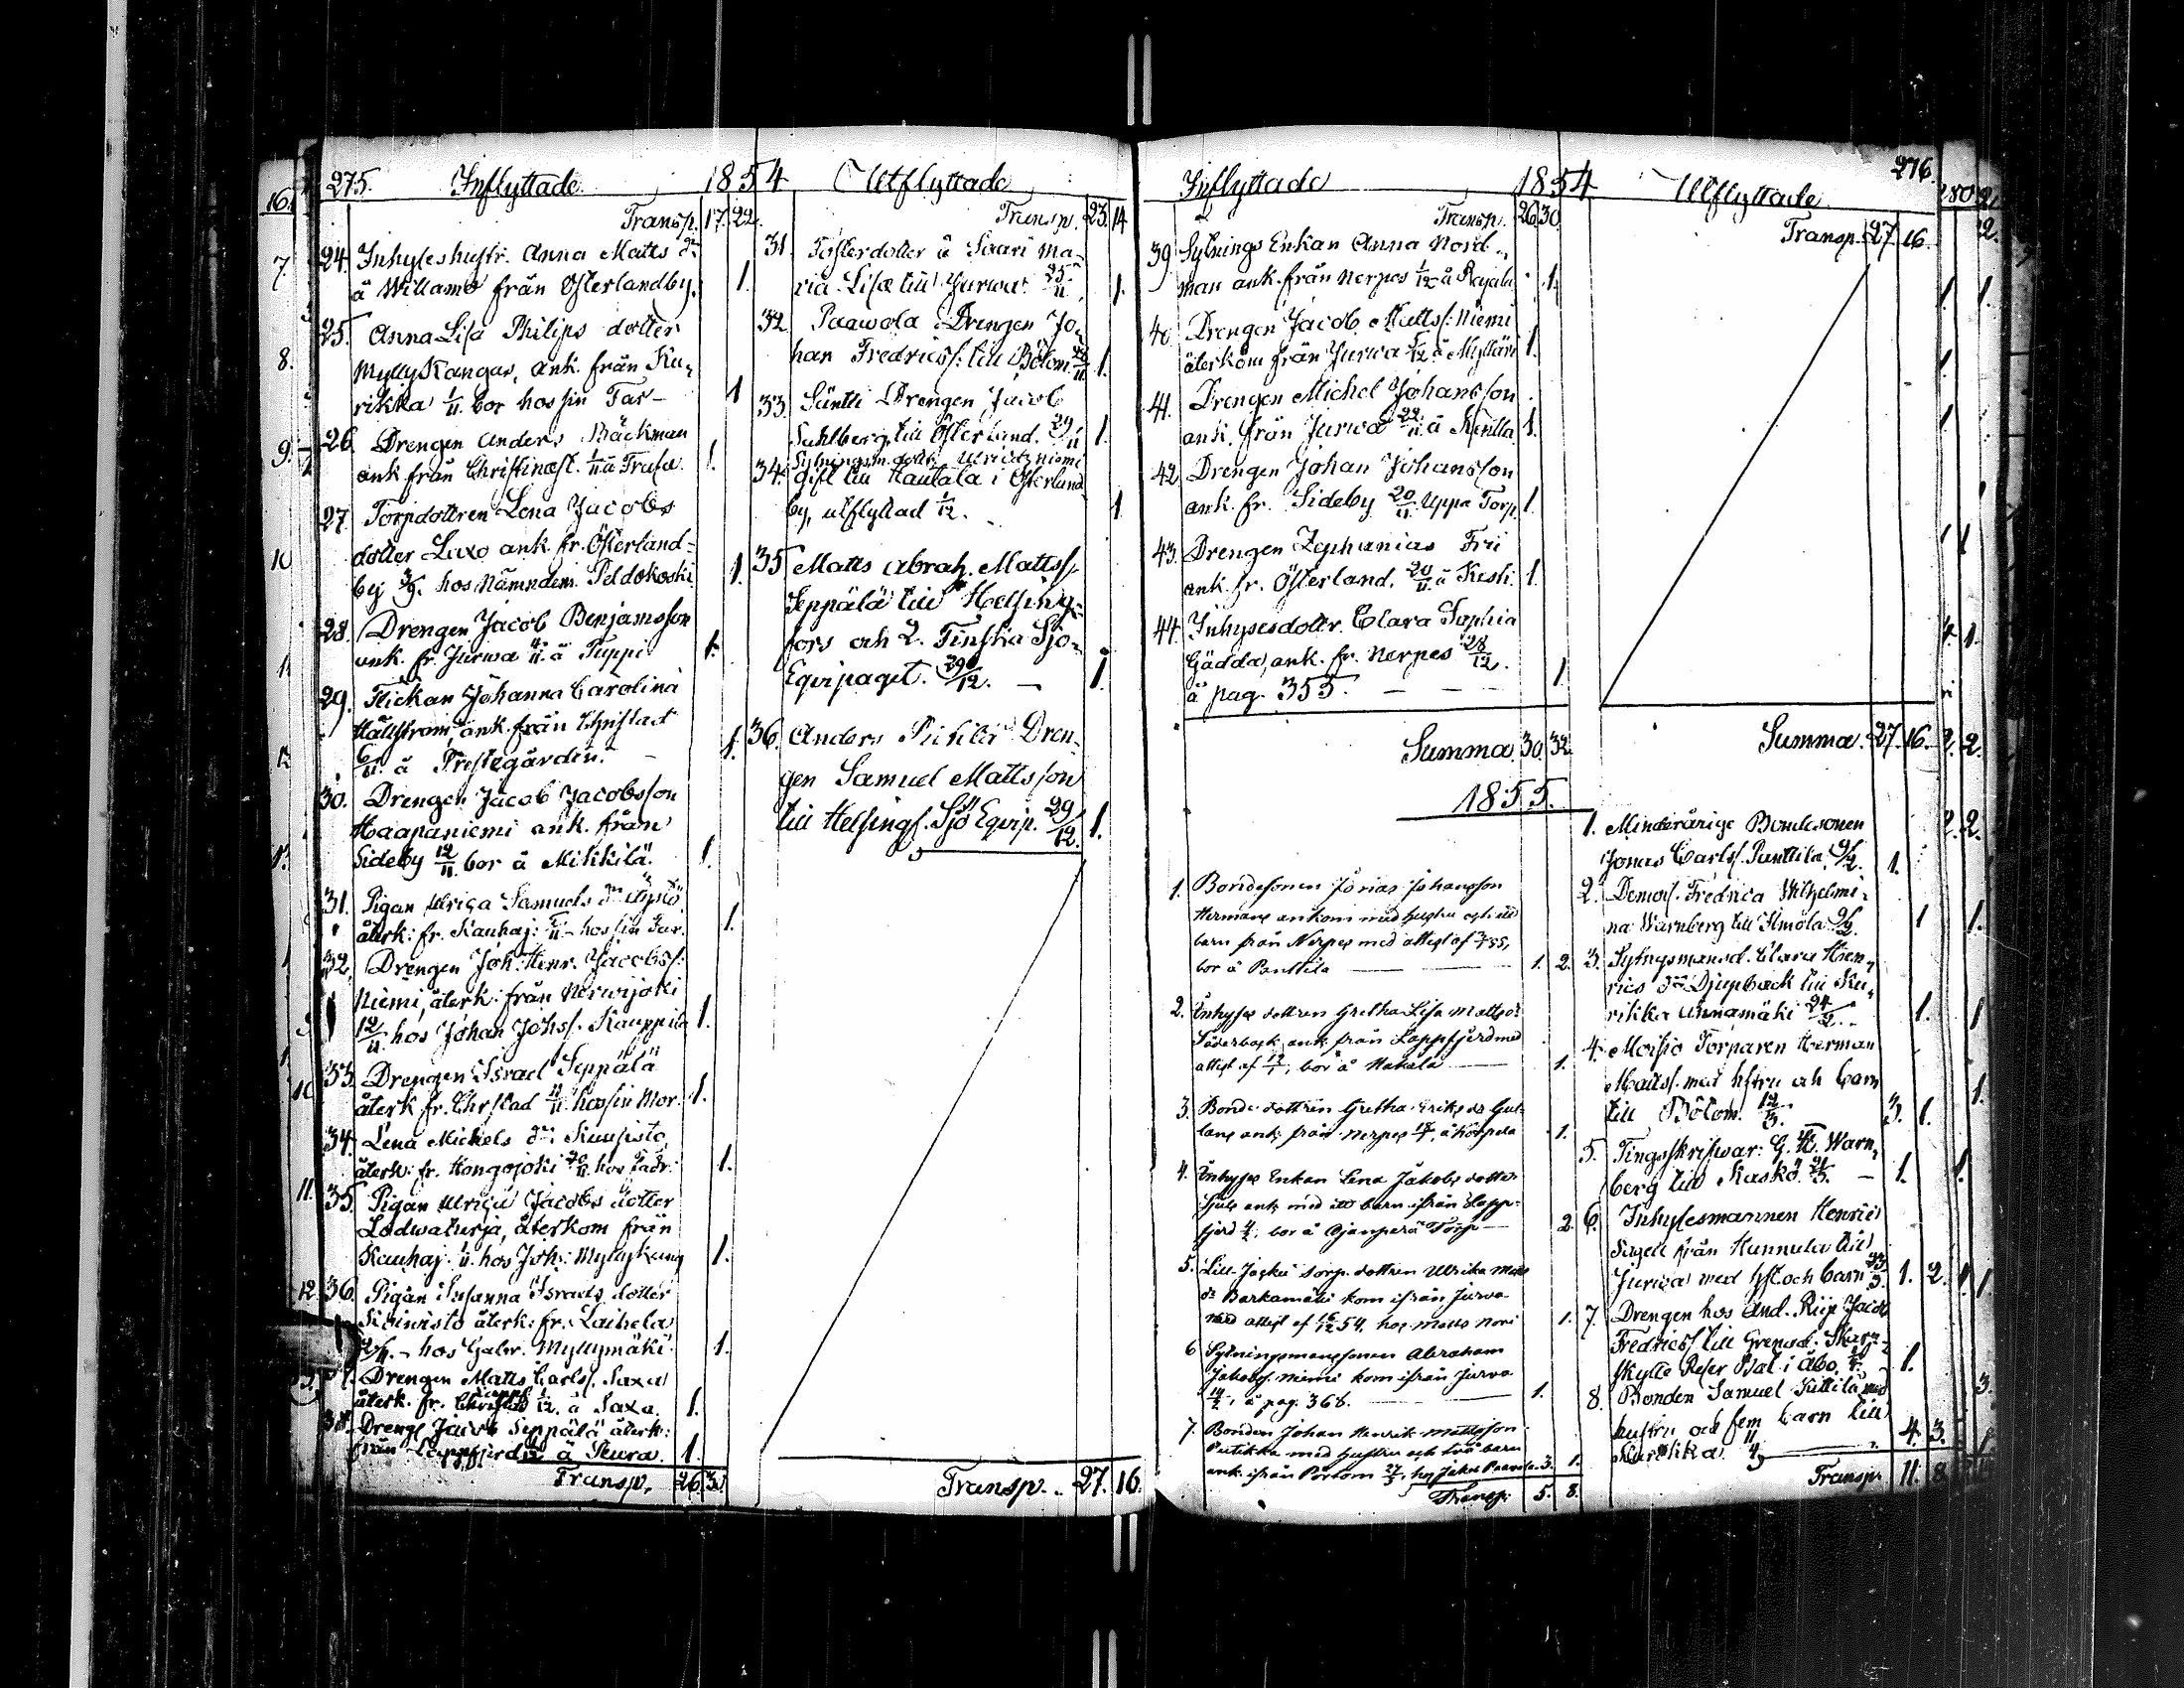 275. Inflyttade 1854
Transp. 17. 22.
24. Inhyseshustr. Anna Matts dr
å Willamo från Österlandby. 1.
25. Anna Lisa Philips dotter
Myllykangas, ank. från Ku-
rikka 1/11 bor hos sin Far- 1
26. Drengen Anders Bäckman
ank. från Christinæst. 1/11 å Trasa. 1.
27. Torpdottren Lena Jacobs
dotter Laxo ank. fr. Österland-
by hos Nämndem. Peldokoski 1.
28. Drengen Jacob Benjamsson
ank. fr. Jurwa 4/11 å Puppi. 1.
29. Flickan Johanna Carolina
Hällström, ank. från Christad
6/11 å Prestegården. 1.
30. Drengen Jacob Jacobsson
Haapaniemi ank. från
Sideby 12/11 bor å Mikkilä. 1.
31. Pigan Ulrica Samuels dr
återk: fr. Kauhaj: hos sin Far. 1.
32. Drengen Joh: Henr. Jacobs.
Niemi, återk: från Nerwijoki
12/11 hos Johan Johs. Kauppila 1.
33. Drengen Israel Seppälä
återk fr. Chrstad 11/11 hos sin Mor. 1.
34. Lena Michels dr
återk: fr. Hongojoki 20/11 hos Fadr: 1.
35. Pigan Ulrica Jacobs dotter
återkom från
Kauhaj. hos Joh: Myllykang 1.
36. Pigan Susanna Israels dotter
återk: fr. Laihela
hos Gabr. Myllymäki 1.
Drengen Matts Carls. Saxa
återk. fr. 1/12 å Saxa. 1.
38. Dreng Jacob Seppälä återk:
från Lappfjerd å Seura. 1.
Transp. 26. 30.
Utflyttade
Transp. 23. 14
31. Fosterdotter å Saari Ma-
ria Lisa till Jurwa 25/11 1.
32. Paawola Drengen Jo-
han Fredricss. till Bötom. 28/11 1.
33. Säntti Drengen Jacob
Sahlberg till Österland. 29/11 1.
34. Sytningsm. dottr. Ulrica Niemi
gift till Hautala i Österland
by, utflyttad 1/12. 1
35 Matts Abrah. Mattss.
Seppälä till Helsing-
fors och 2. Finska Sjö-
Equipaget. 29/12. 1.
36. Anders Pihila Dren-
gen Samuel Matts son
till Helsingf. Sjö Equip. 29/12. 1.
Transp. 27. 16.
Inflyttade 1854
Transp. 26 30.
39. Sytnings Enkan Anna Nord-
man ank. från Nerpes 1/12 å Rajala 1.
40 Drengen Jacob Matts: Niemi
återkom från Jurwa å Myllari 1.
41. Drengen Michel Johansson
ank. från Jurwa 22/11 å Kentta 1.
42 Drengen Johan Johansson
ank. fr. Sideby 20/11 Uppa Torp. 1.
43. Drengen Zephanias Fri
ank. fr. Österland. 20/11 å Keski 1.
44. Inhysesdottr. Clara Sophia
Gädda, ank. fr. Nerpes 28/12.
å pag. 355. 1.
Summa 30. 32.
1855.
1. Bondesonen Jonas Johansson
Hermans ankom med hustru och ett
barn från Nerpes med attest af 55,
bor å Panttila 1. 2.
2. Inhyses dottren Gretha Lisa Matts dr
Söderback ank från Lappfjerd med
attest af, bor å Hakala 1.
3. Bonde dottren Gretha Eriks dr Gul-
lans ank. från Nerpes, å Korpela 1.
4. Inhyses Enkan Lena Jakobs dotter
ank. med ett barn ifrån Lapp-
fjerd, bor å Ojanperä Torp 2.
5. Lill-Jaskei torp. dottren Ulrika Matts
dr Barkamäki kom ifrån Jurva
med attest af 54, hos Matts Nori 1.
6 Sytningsmanssonen Abraham
Jakobs. Niemi kom ifrån Jurva
å pag. 368. 1.
7. Bonden Johan Henrik Mattsson
med hustru och två barn
ank. ifrån Portom 27/3, hos Jakob Paavola 3. 1.
Transp. 5. 8.
276.
Utflyttade
Transp. 27 16.
Summa 27. 16.
1. Minderårige Bondesonen
Jonas Carls. Panttila 1.
2. Demois. Fredrica Wilhelmi-
na Warnberg till Ilmola 1
3. Sytngsmansd. Clara Hen-
rics dr Djupback till Ku-
rikka Unnamäki 24/2. 1.
4. Moisio Torparen Herman
Matts. med hstru och barn
till Bötom. 12/3. 3. 1.
5. Tingsskrifwar: G. H. Warn-
berg till Kaskö 21/3. 1.
6. Inhysesmannen Henric
Sagell från Hannula till
Jurwa med hst och barn 1. 2.
7. Drengen hos And. Riip Jacob
Fredricss till Grenad: Skarp-
skytte Reser Bat i Åbo. 1.
8. Bonden Samuel Kuttila med
hustru och fem barn till
Kurikka 4. 3.
Transp. 11. 8